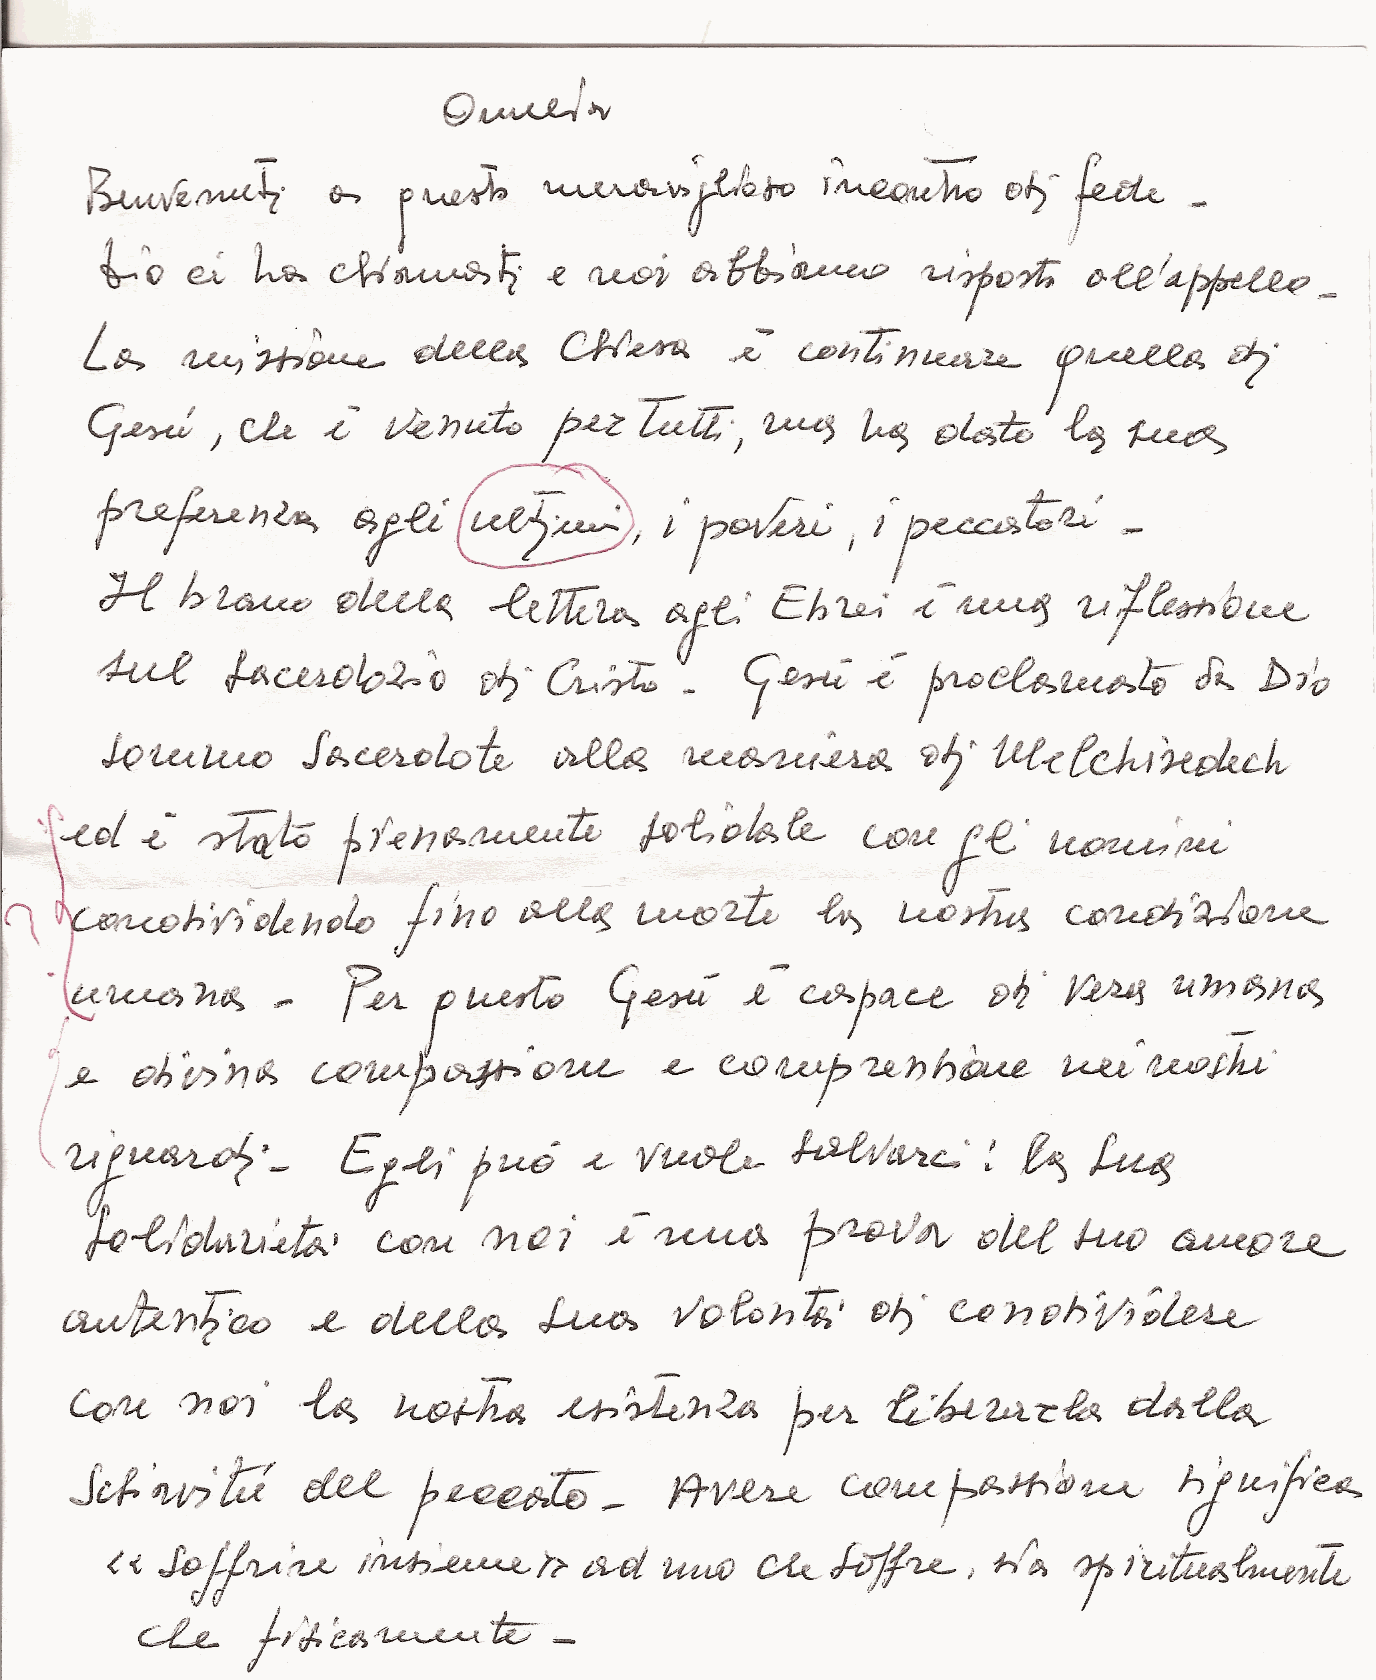 Omelia
Benvenuti a questo meraviglioso incontro di fede -
Dio ci ha chiamati e noi abbiamo risposto all'appello -
La missione della Chiesa è continuare quella di
Gesù, che è venuto per tutti, ma ha dato la sua
preferenza agli ultimi, i poveri, i peccatori -
Il brano della lettera agli Ebrei è una riflessione
sul Sacerdozio di Cristo - Gesù è proclamato da Dio
sommo Sacerdote alla maniera di Melchisedech
ed è stato pienamente solidale con gli uomini
condividendo fino alla morte la nostra condizione
umana - Per questo Gesù è capace di vera umana
e divina compassione e comprensione nei nostri
riguardi - Egli può e vuole salvarci: la sua
solidarietà con noi è una prova del suo amore
autentico e della sua volontà di condividere
con noi la nostra esistenza per liberarla dalla
Schiavitù del peccato - Avere compassione significa
« soffrire insieme » ad uno che soffre, sia spiritualmente
che fisicamente -